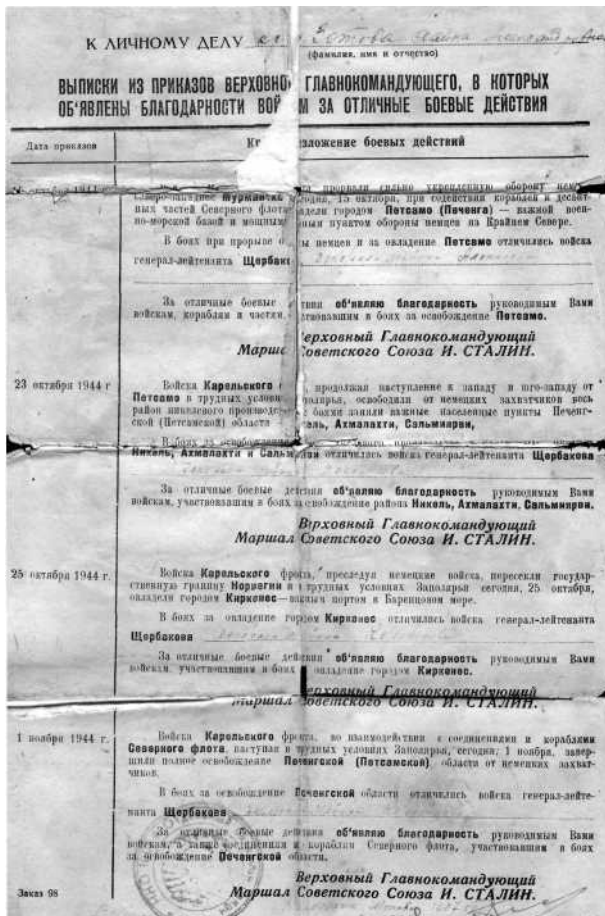 К ЛИЧНОМУ ДЕЛУ
(фамилия, имя и отчество)
ВЫПИСКИ ИЗ ПРИКАЗОВ ВЕРХОВНО ГЛАВНОКОМАНДУЮЩЕГО, В КОТОРЫХ
ОБ'ЯВЛЕНЫ БЛАГОДАРНОСТИ ВОЙ М ЗА ОТЛИЧНЫЕ БОЕВЫЕ ДЕЙСТВИЯ
Дата приказов
Кр изложение боевых действий
октября 1944
прорвали сильно укрепленную оборону
Северо-западнее Мурманска сегодня, 15 октября, при содействии кораблей и десант-
ных частей Северного флота овладели городом Петсамо (Печенга) — важной воен-
но-морской базой и мощным пунктом обороны немцев на Крайнем Севере.
В боях при прорыве немцев и за овладение Петсамо отличились войска
генерал-лейтенанта Щербакова
За отличные боевые действия об'являю благодарность руководимым Вами
войскам, кораблям и частям, участвовавшим в боях за освобождение Петсамо.
Верховный Главнокомандующий
Маршал Советского Союза И. СТАЛИН.
23 октября 1944 г
Войска Карельского продолжая наступление к западу и юго-западу от
Петсамо в трудных условиях Заполярья, освободили от немецких захватчиков весь
район никелевого производства с боями заняли важные населенные пункты Печенг-
ской (Петсамской) области Никель, Ахмалахти, Сальмиярви,
В боях за освобождение
Никель, Ахмалахти и Сальмиярви отличились войска генерал-лейтенанта Щербакова
За отличные боевые действия об'являю благодарность руководимым Вами
войскам, участвовавшим в боях за освобождение района Никель, Ахмалахти, Сальмиярви.
Верховный Главнокомандующий
Маршал Советского Союза И. СТАЛИН.
25 октября 1944 г
Войска Карельского фронта, преследуя немецкие войска, пересекли государ-
ственную границу Норвегии и в трудных условиях Заполярья сегодня, 25 октября,
овладели городом Киркенес—важным портом в Баренцовом море.
В боях за овладение городом Киркенес отличились войска генерал-лейтенанта
Щербакова
За отличные боевые действия об'являю благодарность руководимым Вами
войскам, участвовавшим в боях за овладение городом Киркенес.
Верховный Главнокомандующий
Маршал Советского Союза И. СТАЛИН.
1 ноября 1944 г.
Войска Карельского фронта, во взаимодействии с соединениями и кораблями
Северного флота, наступая в трудных условиях Заполярья, сегодня, 1 ноября, завер-
шили полное освобождение Печенгской (Петсамской) области от немецких захват-
чиков.
В боях за освобождение Печенгской области отличились войска генерал-лейте-
нанта Щербакова
За отличные боевые действия об'являю благодарность руководимым Вами
войскам, а также соединениям и кораблям Северного флота, участвовавшим в боях
за освобождение Печенгской области.
Верховный Главнокомандующий
Маршал Советского Союза И. СТАЛИН.
Заказ 98